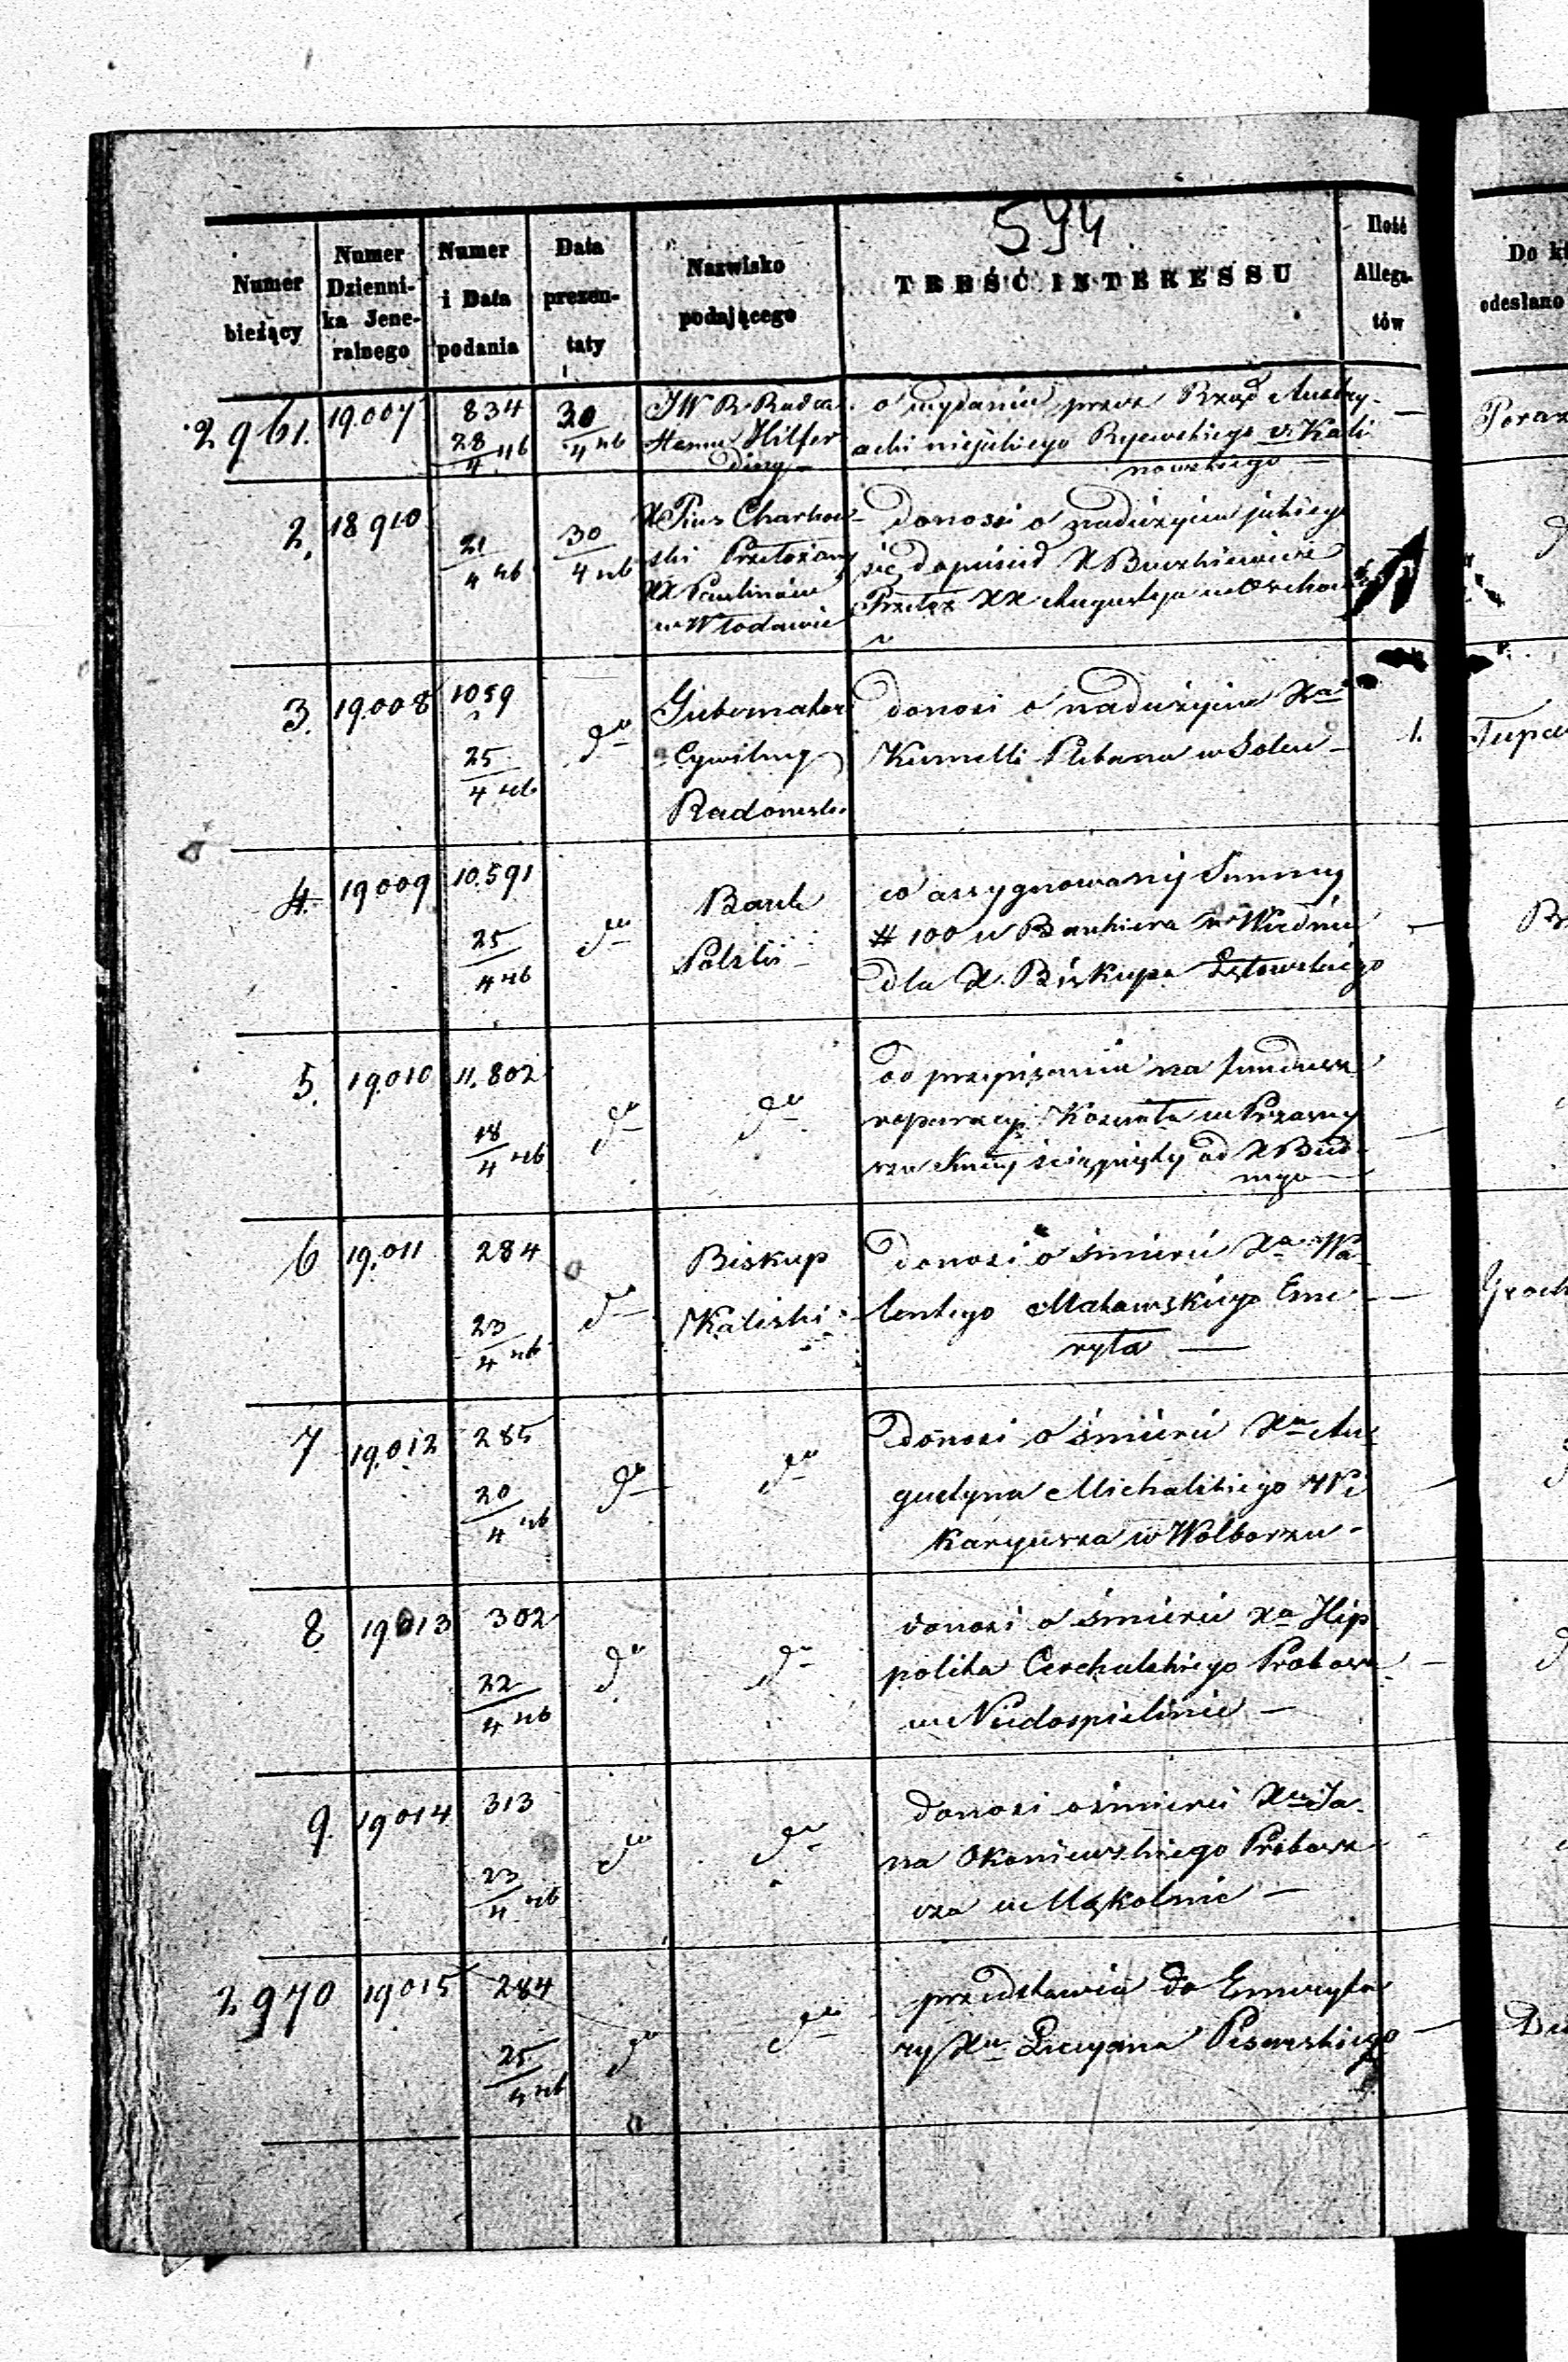 594
Numer bieżący
Numer Dzienni-
ka Jene-
ralnego
Numer i Data podania
Data prezen-
taty
Nazwisko podającego
TREŚĆ INTERESSU
Ilość Allega-
tów
Do
odesłano
2961. 19.007 834 28/4 30/4
JW R. Radca
Stanu Hilfer
ding
o wydaniu przez Rząd Austry-
acki niejakiego Ryewskiego v. Kali
nowskiego —
2. 18910 21/4 30/4
X Pius Charkow-
ski Przełożony
XX Paulinów
w Włodawie
donosi o nadużyciu jakiego
się dopuścił X
Przełoż XX August w
3. 19.008 1059 25/4 do
Gubernator
Cywilny
Radomski
donosi o nadużyciu Xa
Plebana w Solcu —
1.
4. 19009 10.591 25/4 do
Bank
Polski —
o assygnowaniu Summy
# 100 u Bankiera w Wiedniu
dla X. Biskupa Łętowskiego
5. 19.010 11.802 18/4 do
do
od przepisania na fundusz
reparacyi Kościoła w
ściągnięty od X Bied-
nego —
6 19.011 284 23/4 do
Biskup
Kaliski
donosi o śmierci Xa Wa-
lentego Matawskiego Eme-
ryta —
7 19.012 285 20/4 do
do
donosi o śmierci Xa Au-
gustyna Michalskiego Wi
karyusza w Wolborzu —
8 19013 302 22/4 do
do
donosi o śmierci Xa Hip
polita Cerchulskiego Probosz
w Niedospielinie —
9. 19014 313 23/4 do
do
donosi o śmierci Xa Ja-
na Okoniewskiego Probosz
cza w Mąkolnie —
2970 19015 284 25/4 do
do
przedstawia do Emeryta
ry Xa Lucyana Pisarskiego